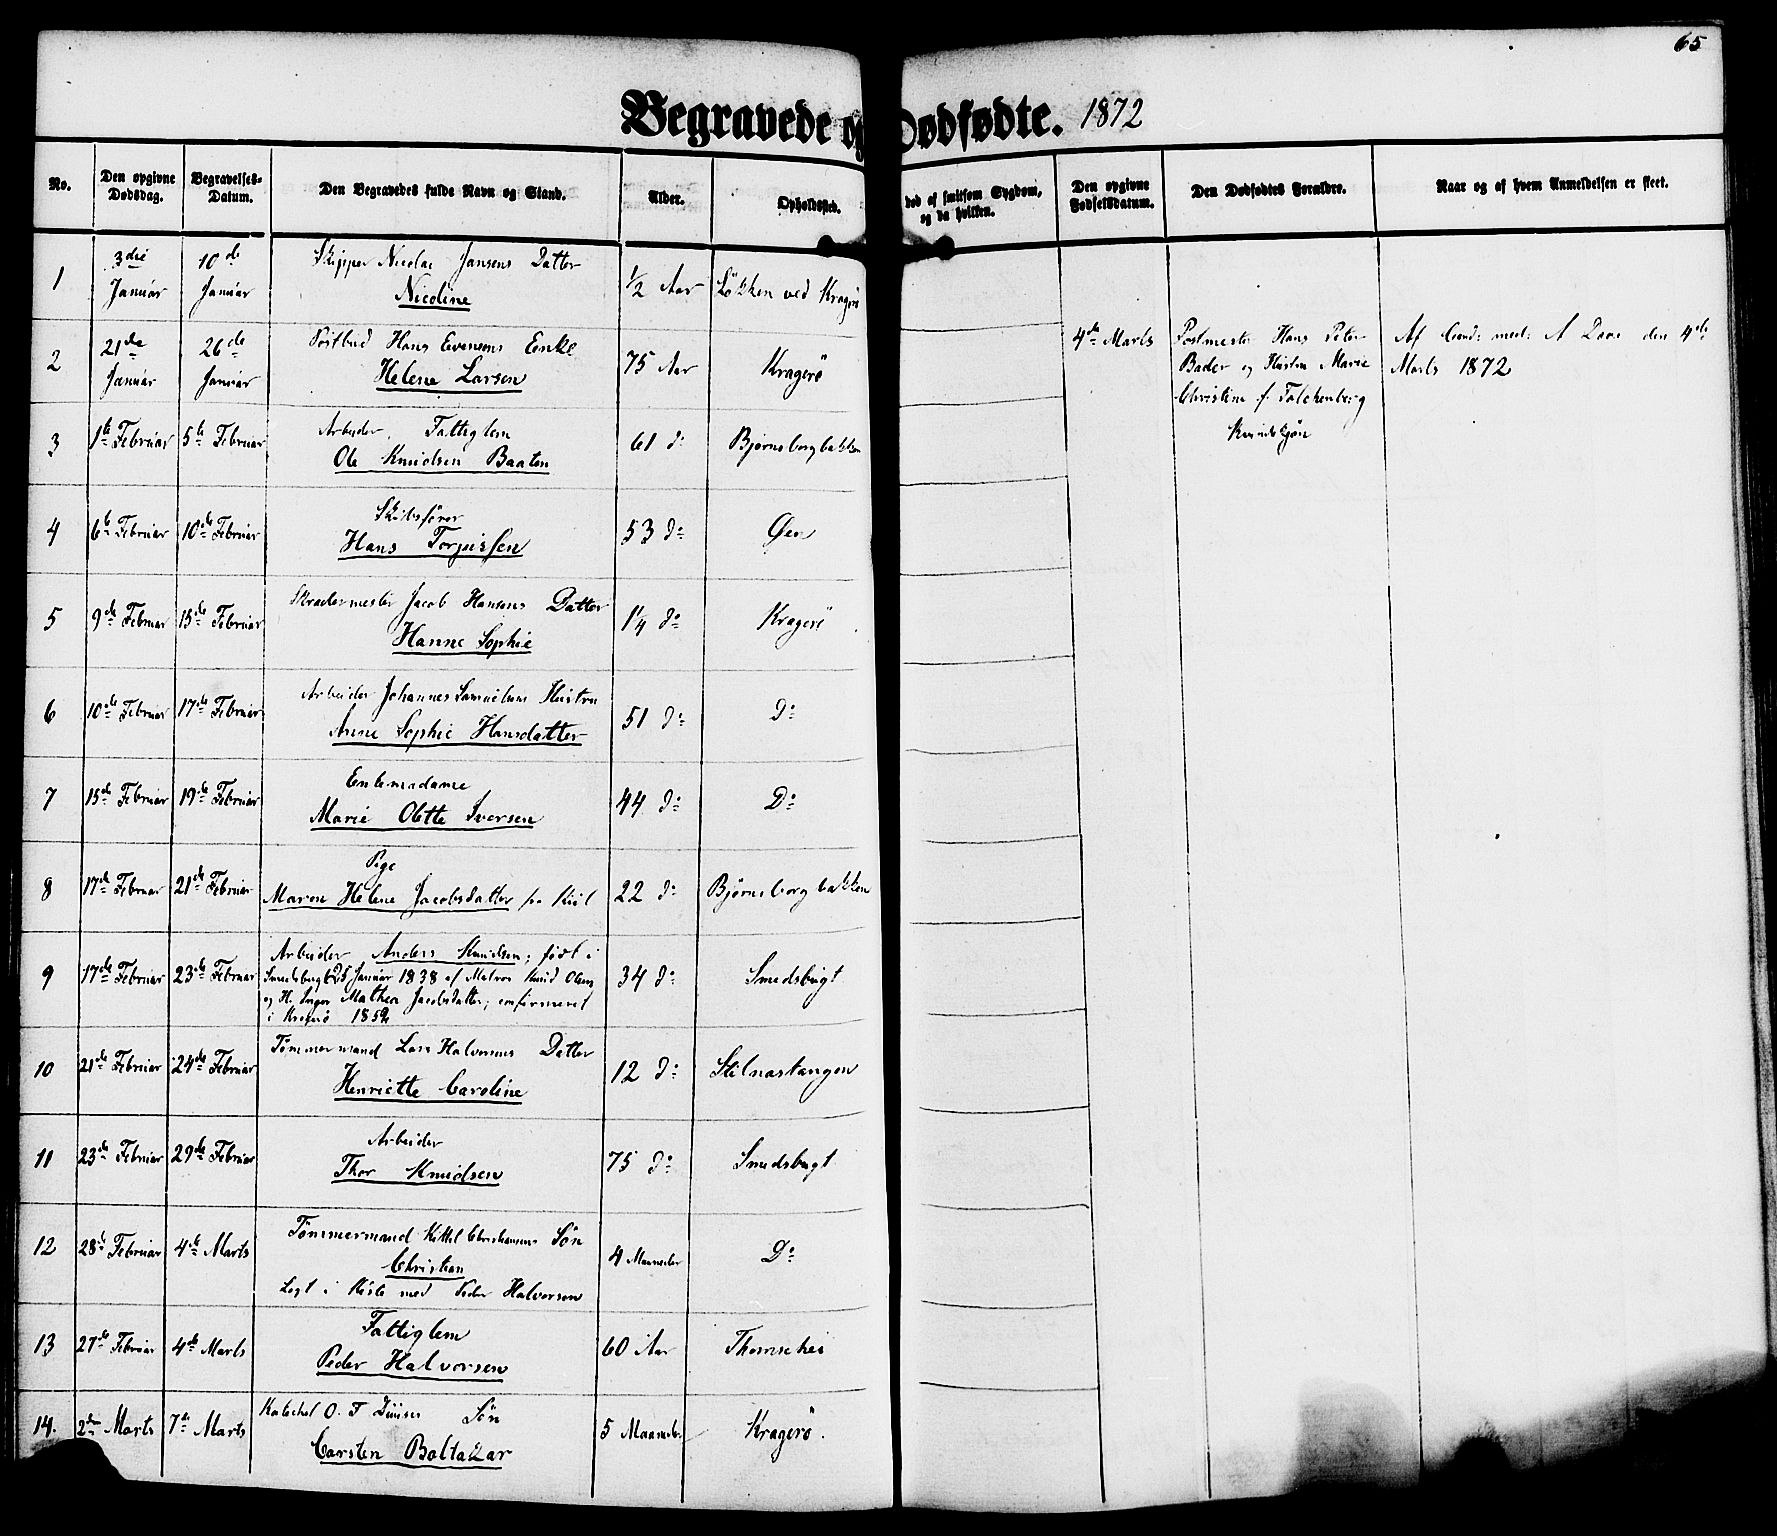 65
Begravede og Dødfødte. 1872
No.
Den opgivne Dødsdag.
Begravelses-Datum.
Den Begravedes fulde Navn og Stand.
Alder.
Opholdssted.
død af smitsom Sygdom, og da hvilken.
Den opgivne Fødselsdatum.
Den Dødfødtes Forældre.
Naar og af hvem Anmeldelsen er skeet.
1
3die Januar
10de Januar
Skipper Nicolai Jansens Datter
Nicoline
1/2 Aar
Løkken ved Kragerö
2
21de Januar
26de Januar
Postbud Hans Evensens Enke
Helene Larsen
75 Aar
Kragerö
3
1te Februar
5te Februar
Arbeider, Fattiglem
Ole Knudsen Baaten
61 do
Bjørnsborgbakken
4
6te Februar
10de Februar
Skibsfører
Hans Torjussen
53 do
Øen
5
9de Februar
15de Februar
Skrædermester Jacob Hansens Datter
Hanne Sophie
1 1/4 do
Kragerö
6
10de Februar
17de Februar
Arbeider Johannes Samuelsens Hustru
Anne Sophie Hansdatter
51 do
Do
7
15de Februar
19de Februar
Enkemadame
Marie Olette Iversen
44 do
Do
8
17de Februar
21de Februar
Pige
Maren Helene Jacobsdatter fra Kiil
22 do
Bjørnsborgbakken
9
17de Februar
23de Februar
Arbeider Anders Knudsen; født i
Smedsbugt 25 Januar 1838 af Matros Knud Olsen
og H. Inger Mathea Jacobsdatter; confirmeret
i Kragerö 1852
34 do
Smedsbugt
10
21de Februar
24de Februar
Tømmermand Lars Halvorsens Datter
Henriette Caroline
12 do
Stilnestangen
11
23de Februar
29de Februar
Arbeider
Thor Knudsen
75 do
Smedsbugt
12
28de Februar
4de Marts
Tømmermand Kittel Christiansens Søn
Christian
Lagt i Kiste med Peder Halvorsen
4 Maaneder
Do
13
27de Februar
4de Marts
Fattiglem
Peder Halvorsen
60 Aar
Thomeshei
14.
2den Marts
7de Marts
Kateket O. F. Søn
Carsten Baltazar
5 Maaneder
Kragerö.
4de Marts
Postmester Hans Peter
Bader og Hustru Marie
Christine f. Falchenberg
Kvindekjøn
Af Cand: med: A Daae den 4de
Marts 1872